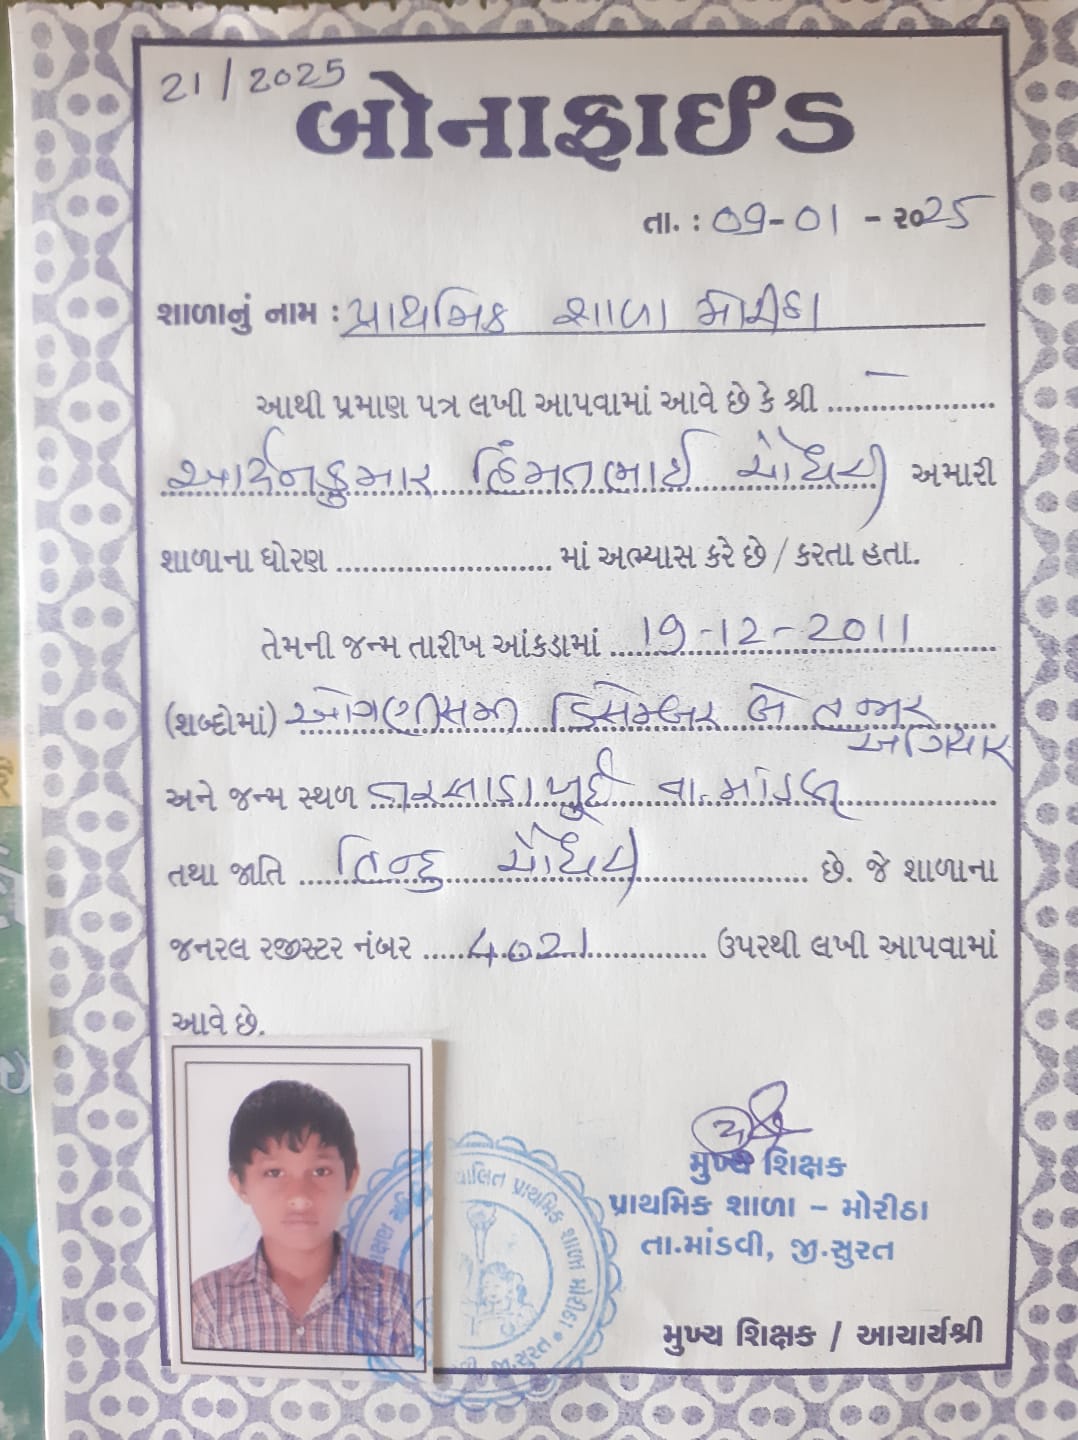 21/2025
બોનાફાઈડ
તા. : 09-01 - ૨૦25
શાળાનું નામ : પ્રાથમિક શાળા મોરીઠા
આથી પ્રમાણ પત્ર લખી આપવામાં આવે છે કે શ્રી ....................
આર્યનકુમાર હિંમતભાઈ ચૌધરી અમારી
શાળાના ધોરણ .......................... માં અભ્યાસ કરે છે / કરતા હતા.
તેમની જન્મ તારીખ આંકડામાં 19-12-2011
(શબ્દોમાં) ઓગણીસમી ડિસેમ્બર બે હજાર
અગિયાર
અને જન્મ સ્થળ તા.માંડવી
તથા જાતિ હિન્દુ ચૌધરી છે. જે શાળાના
જનરલ રજીસ્ટર નંબર 4021 ઉપરથી લખી આપવામાં
આવે છે.
મુખ્ય શિક્ષક
પ્રાથમિક શાળા - મોરીઠા
તા.માંડવી, જી.સુરત
પ્રાથમિક શાળા મોરીઠા
જી.સુરત
મુખ્ય શિક્ષક / આચાર્યશ્રી